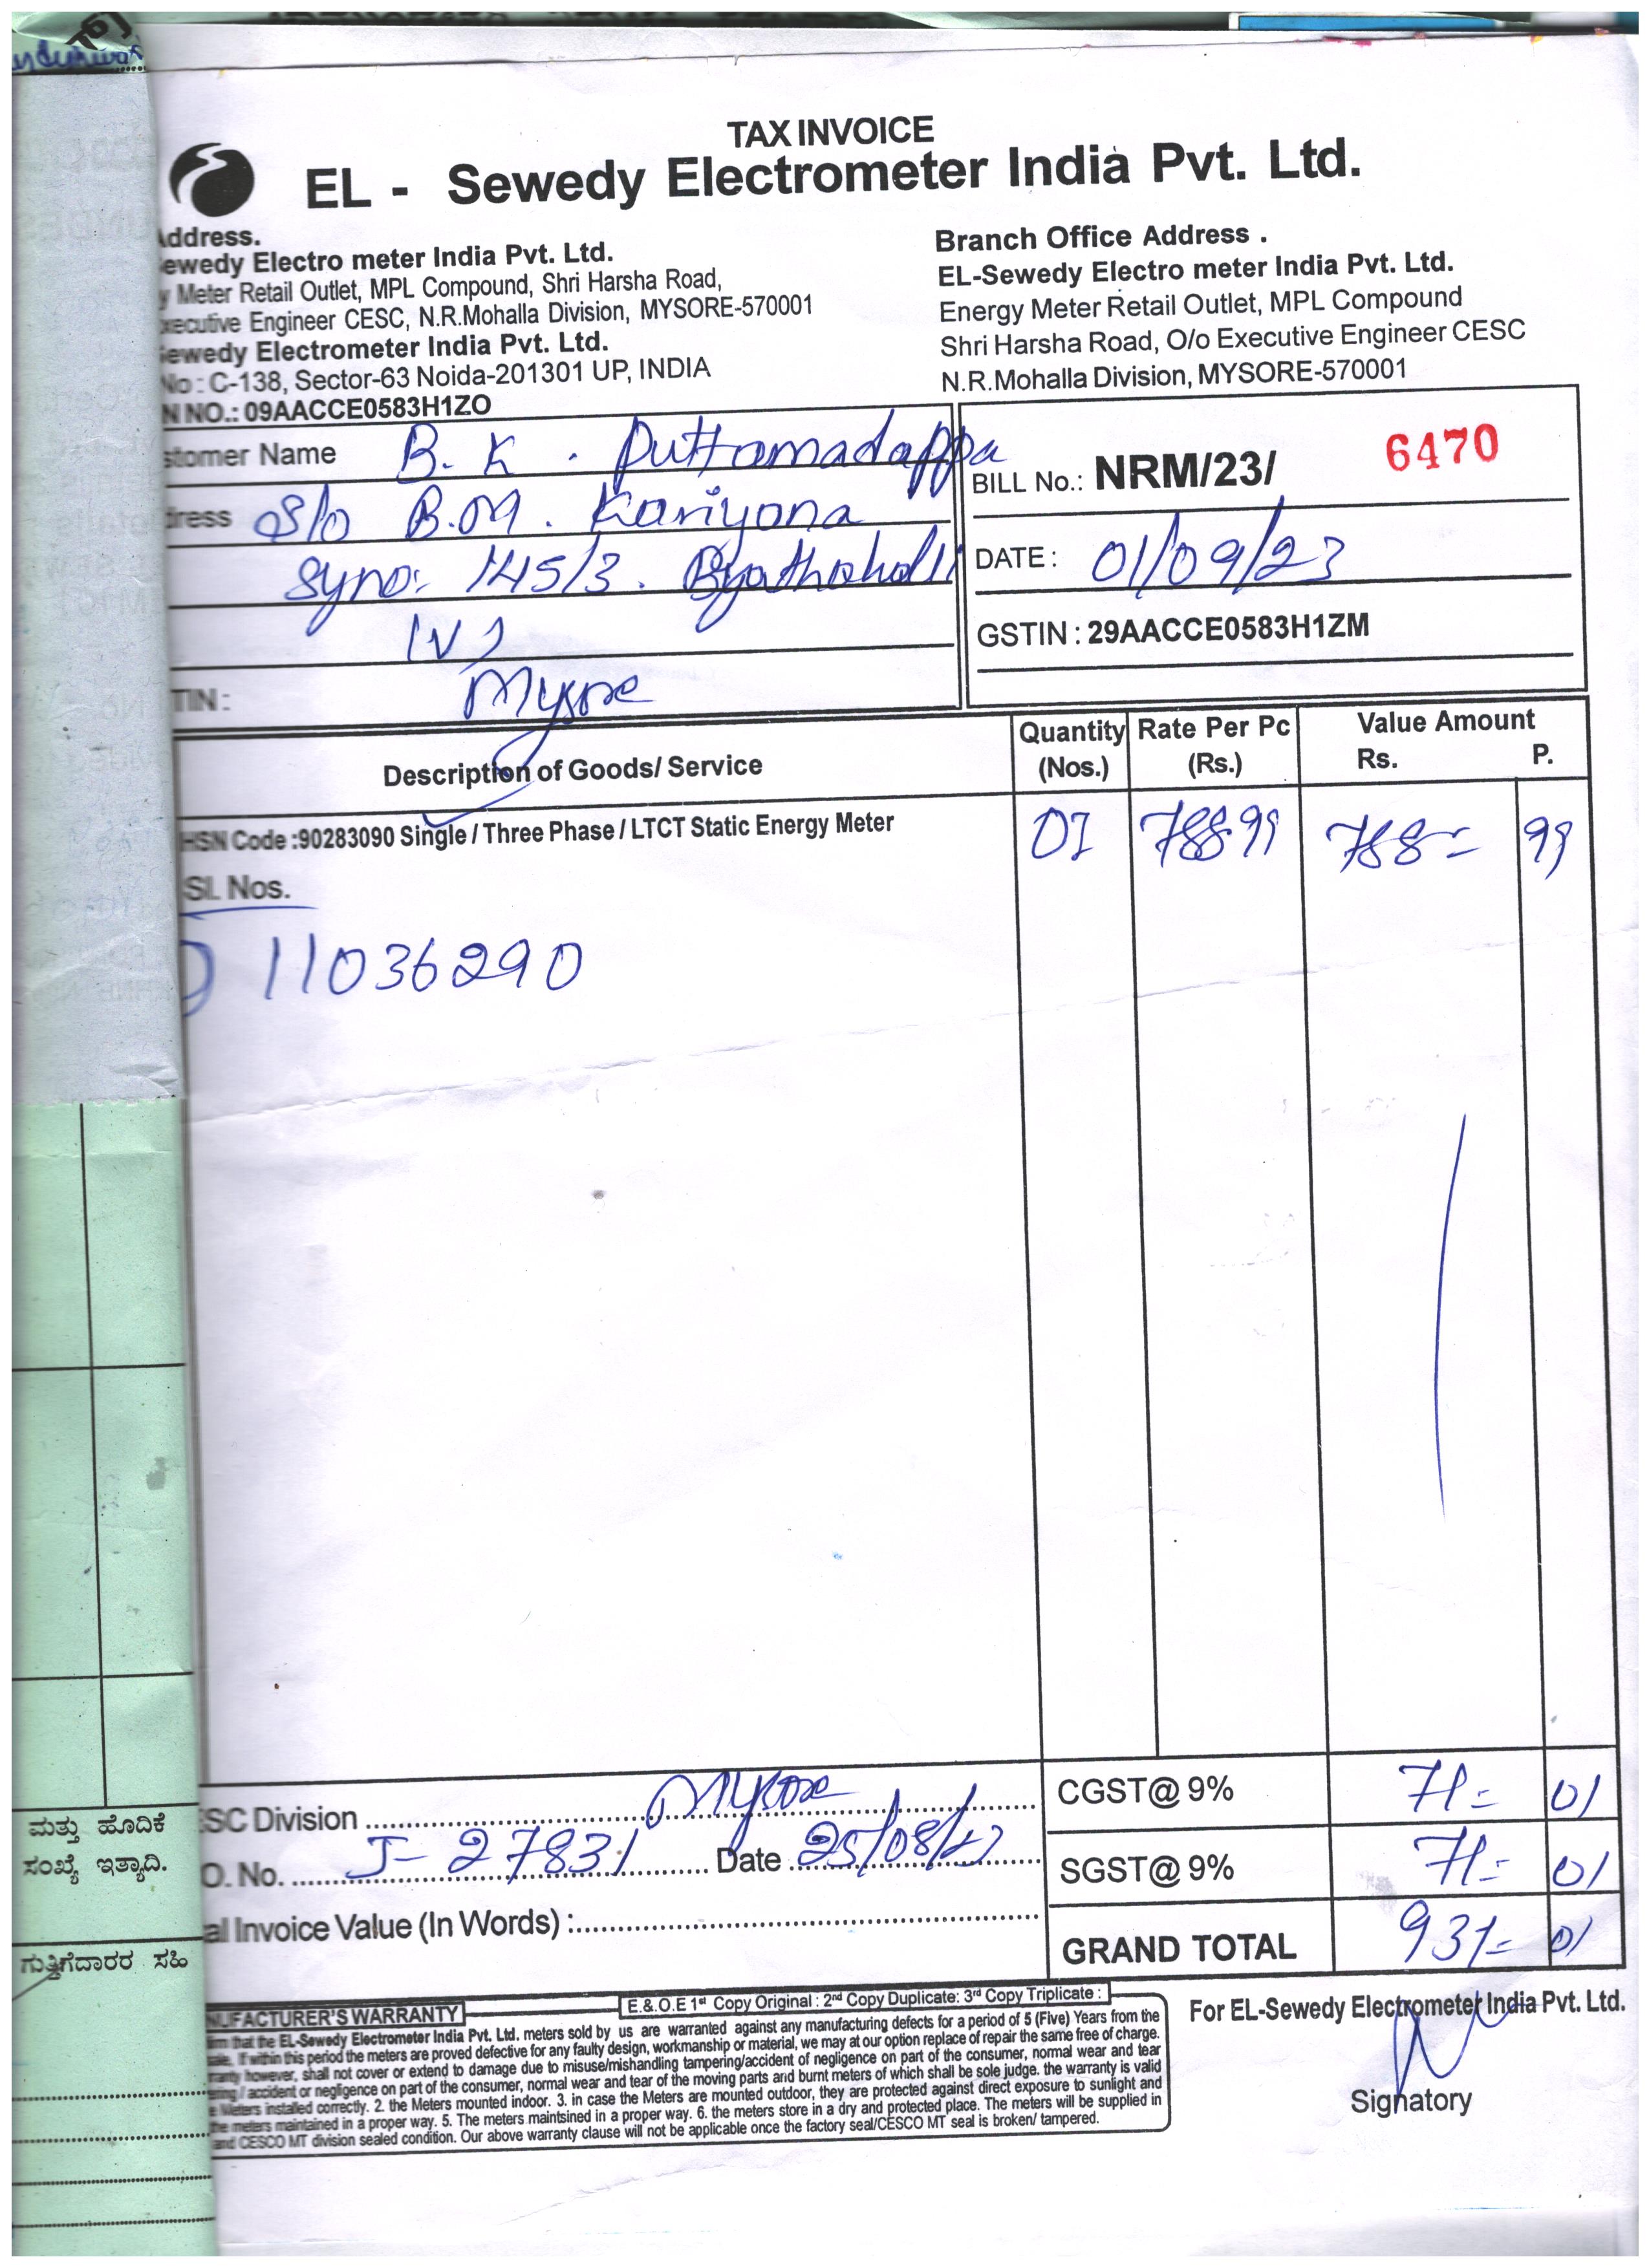 TAX INVOICE
EL - Sewedy Electrometer India Pvt. Ltd.
Address.
ewedy Electro meter India Pvt. Ltd.
y Meter Retail Outlet, MPL Compound, Shri Harsha Road,
xecutive Engineer CESC, N.R.Mohalla Division, MYSORE-570001
ewedy Electrometer India Pvt. Ltd.
No : C-138, Sector-63 Noida-201301 UP, INDIA
N NO.: 09AACCE0583H1ZO
Branch Office Address .
EL-Sewedy Electro meter India Pvt. Ltd.
Energy Meter Retail Outlet, MPL Compound
Shri Harsha Road, O/o Executive Engineer CESC
N.R.Mohalla Division, MYSORE-570001
stomer Name B. K . Puttamadappa
dress S/o B.M. Kariyona
Syno: 145/3. Byathahalli
(V)
TIN : Mysore
BILL No.: NRM/23/ 6470
DATE : 01/09/23
GSTIN : 29AACCE0583H1ZM
Description of Goods/ Service Quantity (Nos.) Rate Per Pc (Rs.) Value Amount Rs. P.
HSN Code :90283090 Single / Three Phase / LTCT Static Energy Meter 01 788 99 788= 99
SI. Nos.
) 11036290
SC Division Mysore
O. No. J- 27831 Date 25/08/23
al Invoice Value (In Words) :
CGST@ 9% 71= 01
SGST@ 9% 71= 01
GRAND TOTAL 931= 01
E.&.O.E 1st Copy Original : 2nd Copy Duplicate: 3rd Copy Triplicate :
NUFACTURER'S WARRANTY
irm that the EL-Sewedy Electrometer India Pvt. Ltd. meters sold by us are warranted against any manufacturing defects for a period of 5 (Five) Years from the
sale. If within this period the meters are proved defective for any faulty design, workmanship or material, we may at our option replace of repair the same free of charge.
rranty however, shall not cover or extend to damage due to misuse/mishandling tampering/accident of negligence on part of the consumer, normal wear and tear
ering / accident or negligence on part of the consumer, normal wear and tear of the moving parts and burnt meters of which shall be sole judge. the warranty is valid
e Meters installed correctly. 2. the Meters mounted indoor. 3. in case the Meters are mounted outdoor, they are protected against direct exposure to sunlight and
the meters maintained in a proper way. 5. The meters maintsined in a proper way. 6. the meters store in a dry and protected place. The meters will be supplied in
and CESCO MT division sealed condition. Our above warranty clause will not be applicable once the factory seal/CESCO MT seal is broken/ tampered.
For EL-Sewedy Electrometer India Pvt. Ltd.
Signatory
ಮತ್ತು ಹೊದಿಕೆ
ಸಂಖ್ಯೆ ಇತ್ಯಾದಿ.
ಗುತ್ತಿಗೆದಾರರ ಸಹಿ